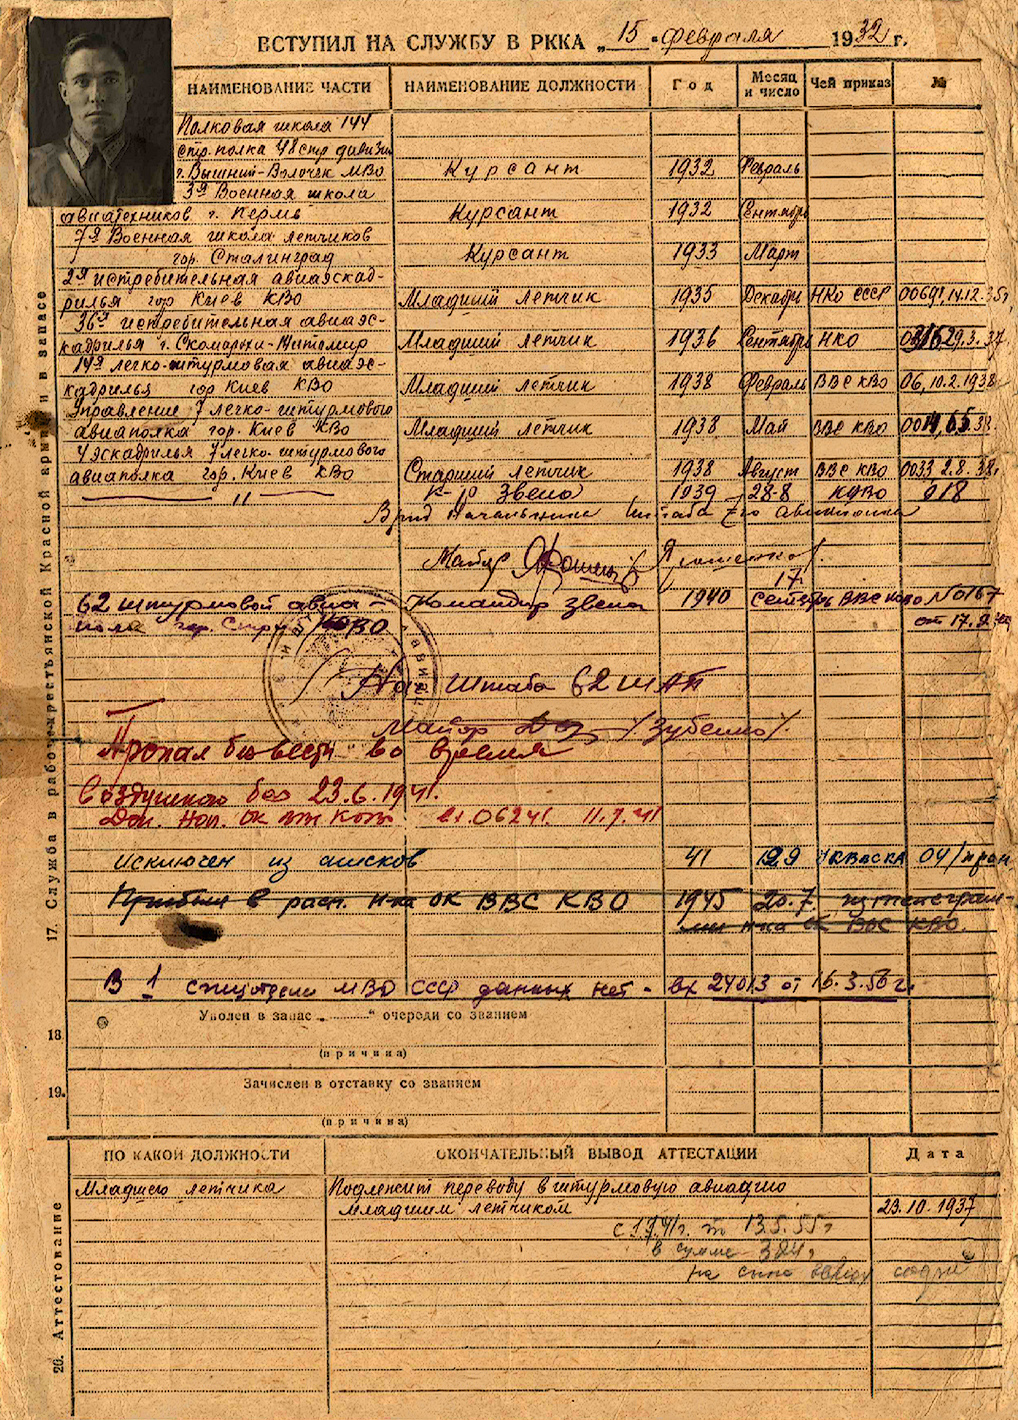 ВСТУПИЛ НА СЛУЖБУ В РККА „15“ февраля 1932 г.
НАИМЕНОВАНИЕ ЧАСТИ НАИМЕНОВАНИЕ ДОЛЖНОСТИ Год Месяц и число Чей приказ №
Полковая школа 144
стр. полка 48 стр дивизии
г. Вышний-Волочек МВО Курсант 1932 Февраль
3я Военная школа
авиатехников г. Пермь Курсант 1932 Сентябрь
7я Военная школа летчиков
гор. Сталинград Курсант 1933 Март
2я истребительная авиаэскад-
рилья гор Киев КВО Младший летчик 1935 Декабрь НКО СССР 00691, 14.12.35г
36я истребительная авиаэс-
кадрилья г. Скоморохи-Житомир Младший летчик 1936 Сентябрь НКО 29.3.37
14я легко-штурмовая авиаэс-
кадрилья гор Киев КВО Младший летчик 1938 Февраль ВВС КВО 06, 10.2.1938
Управление 7 легко-штурмового
авиаполка гор. Киев КВО Младший летчик 1938 Май ВВС КВО
4 эскадрилья 7 легко-штурмового
авиаполка гор. Киев КВО Старший летчик 1938 Август ВВС КВО 0033 2.8.38г
" К-р звена 1939 28-8 КОВО 018
Врид Начальника Штаба 7го авиаполка
Майор
17.
62 штурмовой авиа- Командир звена 1940 Сентябрь ВВС КОВО № 0167
полк гор. КОВО от 17.9.40
Нач Штаба 62 ШАП
Майор /Зубенко/.
Пропал без вести во время
воздушного боя 23.6.1941.
11.7.41
исключен из списков 41 04/
Прибыл в расп. н-ка ОК ВВС КВО 1945 20.7 из телеграм-
мы н-ка ОК ВВС КВО.
В 1 спецотделе МВО СССР данных нет - вх 24013 от 16.3.56 г.
17. Служба в рабоче-крестьянской Красной армии и в запасе
18. Уволен в запас „ “ очереди со званием
(причина)
19. Зачислен в отставку со званием
(причина)
ПО КАКОЙ ДОЛЖНОСТИ ОКОНЧАТЕЛЬНЫЙ ВЫВОД АТТЕСТАЦИИ Дата
Младшего летчика Подлежит переводу в штурмовую авиацию
младшим летчиком 23.10.1937
13.5.55г
в сумме
на сына
20. Аттестование